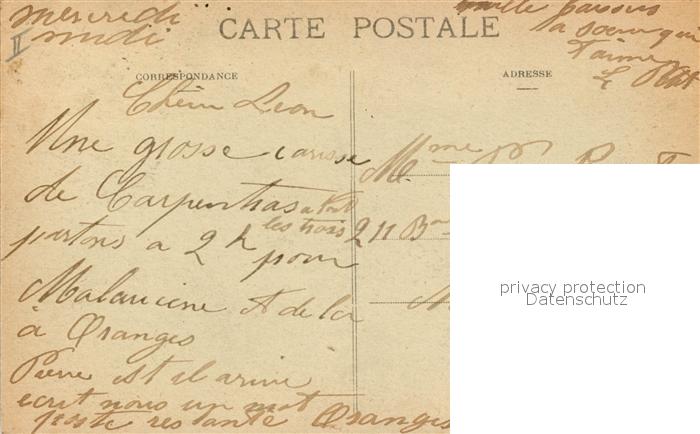 mercredi
midi
II
CARTE POSTALE
mille baisers
ta soeur qui
t'aime
CORRESPONDANCE
ADRESSE
Une grosse caresse
de Carpentras
partons a 2 h les trois
pour
Malaucene et de la
à Oranges
Pierre est il arrivé
ecrit nous un mot
poste restante Oranges
Mme
211 Bd
privacy protection
Datenschutz